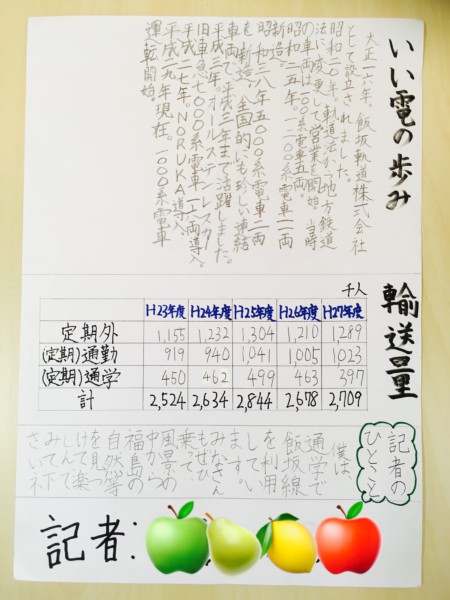 いい電の歩み
大正一六年、飯坂軌道株式会社
として設立されました。
昭和二〇年、軌道法から地方鉄道
法に変更して営業を開始。当時
の車両は一〇〇系電車五両。
昭和二五年。一二〇〇系電車一両
新造。
昭和三八年五〇〇〇系電車二両
を新造。全国的にも珍しい連結
車両で、平成三年まで活躍しました。
平成三年。オールステンレスカー
旧東急七〇〇〇系電車一六両導入。
平成二七年。NORUKA導入。
平成二九年現在。一〇〇〇系電車
運転開始。
輸送量
千人
H23年度 H24年度 H25年度 H26年度 H27年度
定期外 1,155 1,232 1,304 1,210 1,289
(定期)通勤 919 940 1,041 1,005 1023
(定期)通学 450 462 499 463 397
計 2,524 2,634 2,844 2,678 2,709
記者の
ひとこと
僕は、
通学で
飯坂線
を利用
してい
ます。
みなさん
もぜひ
乗って、
風景の
中からの
福島の
自然等
を見つ
けて楽
しんで下
さいネ
記者: